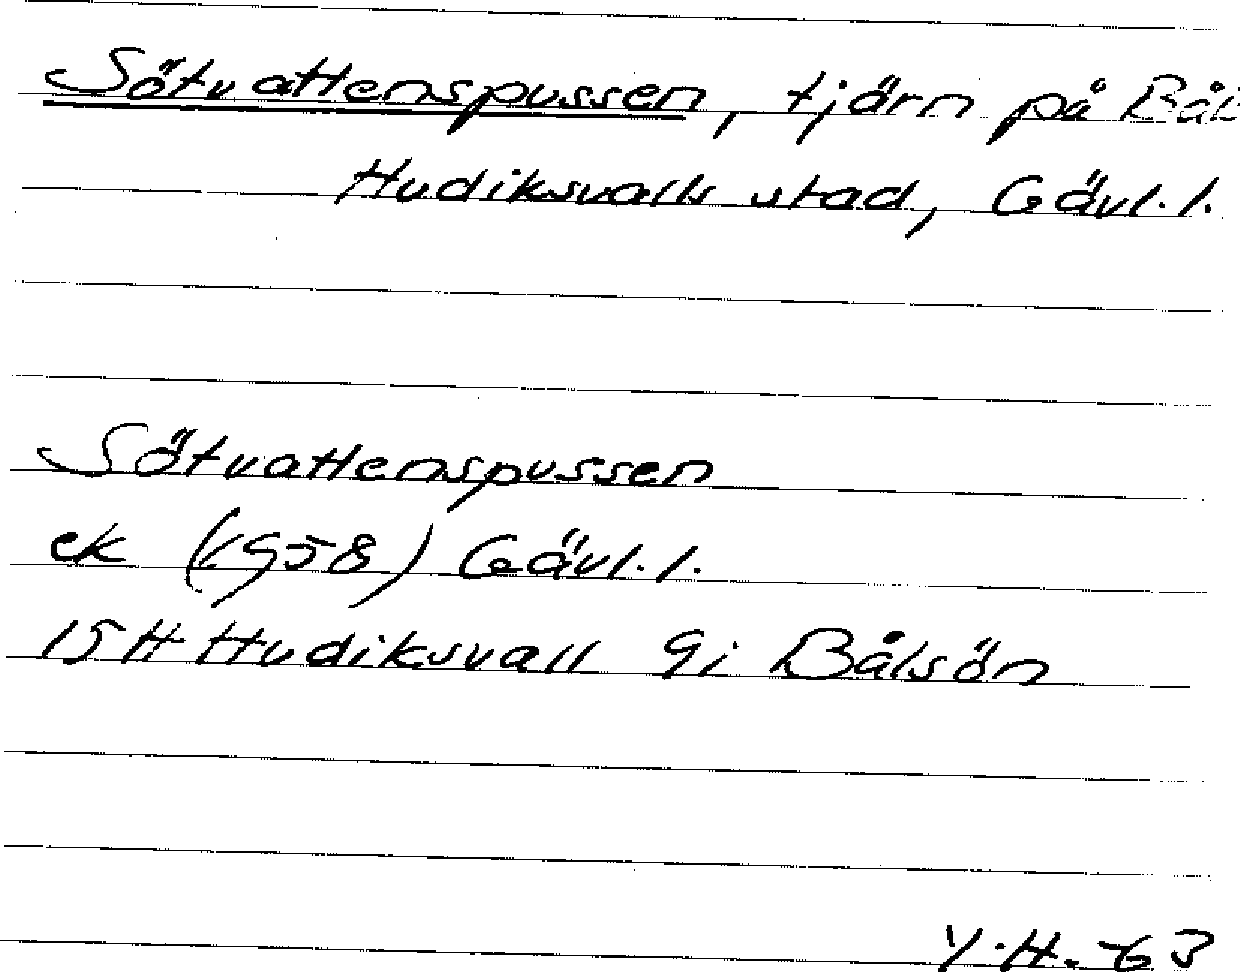 Sötvattenspussen, tjärn på Bål
Hudiksvalls stad, Gävl.l.
Sötvattenspussen
ek (1958) Gävl.l.
15H Hudiksvall 9i Bålsön
Y.H. -63